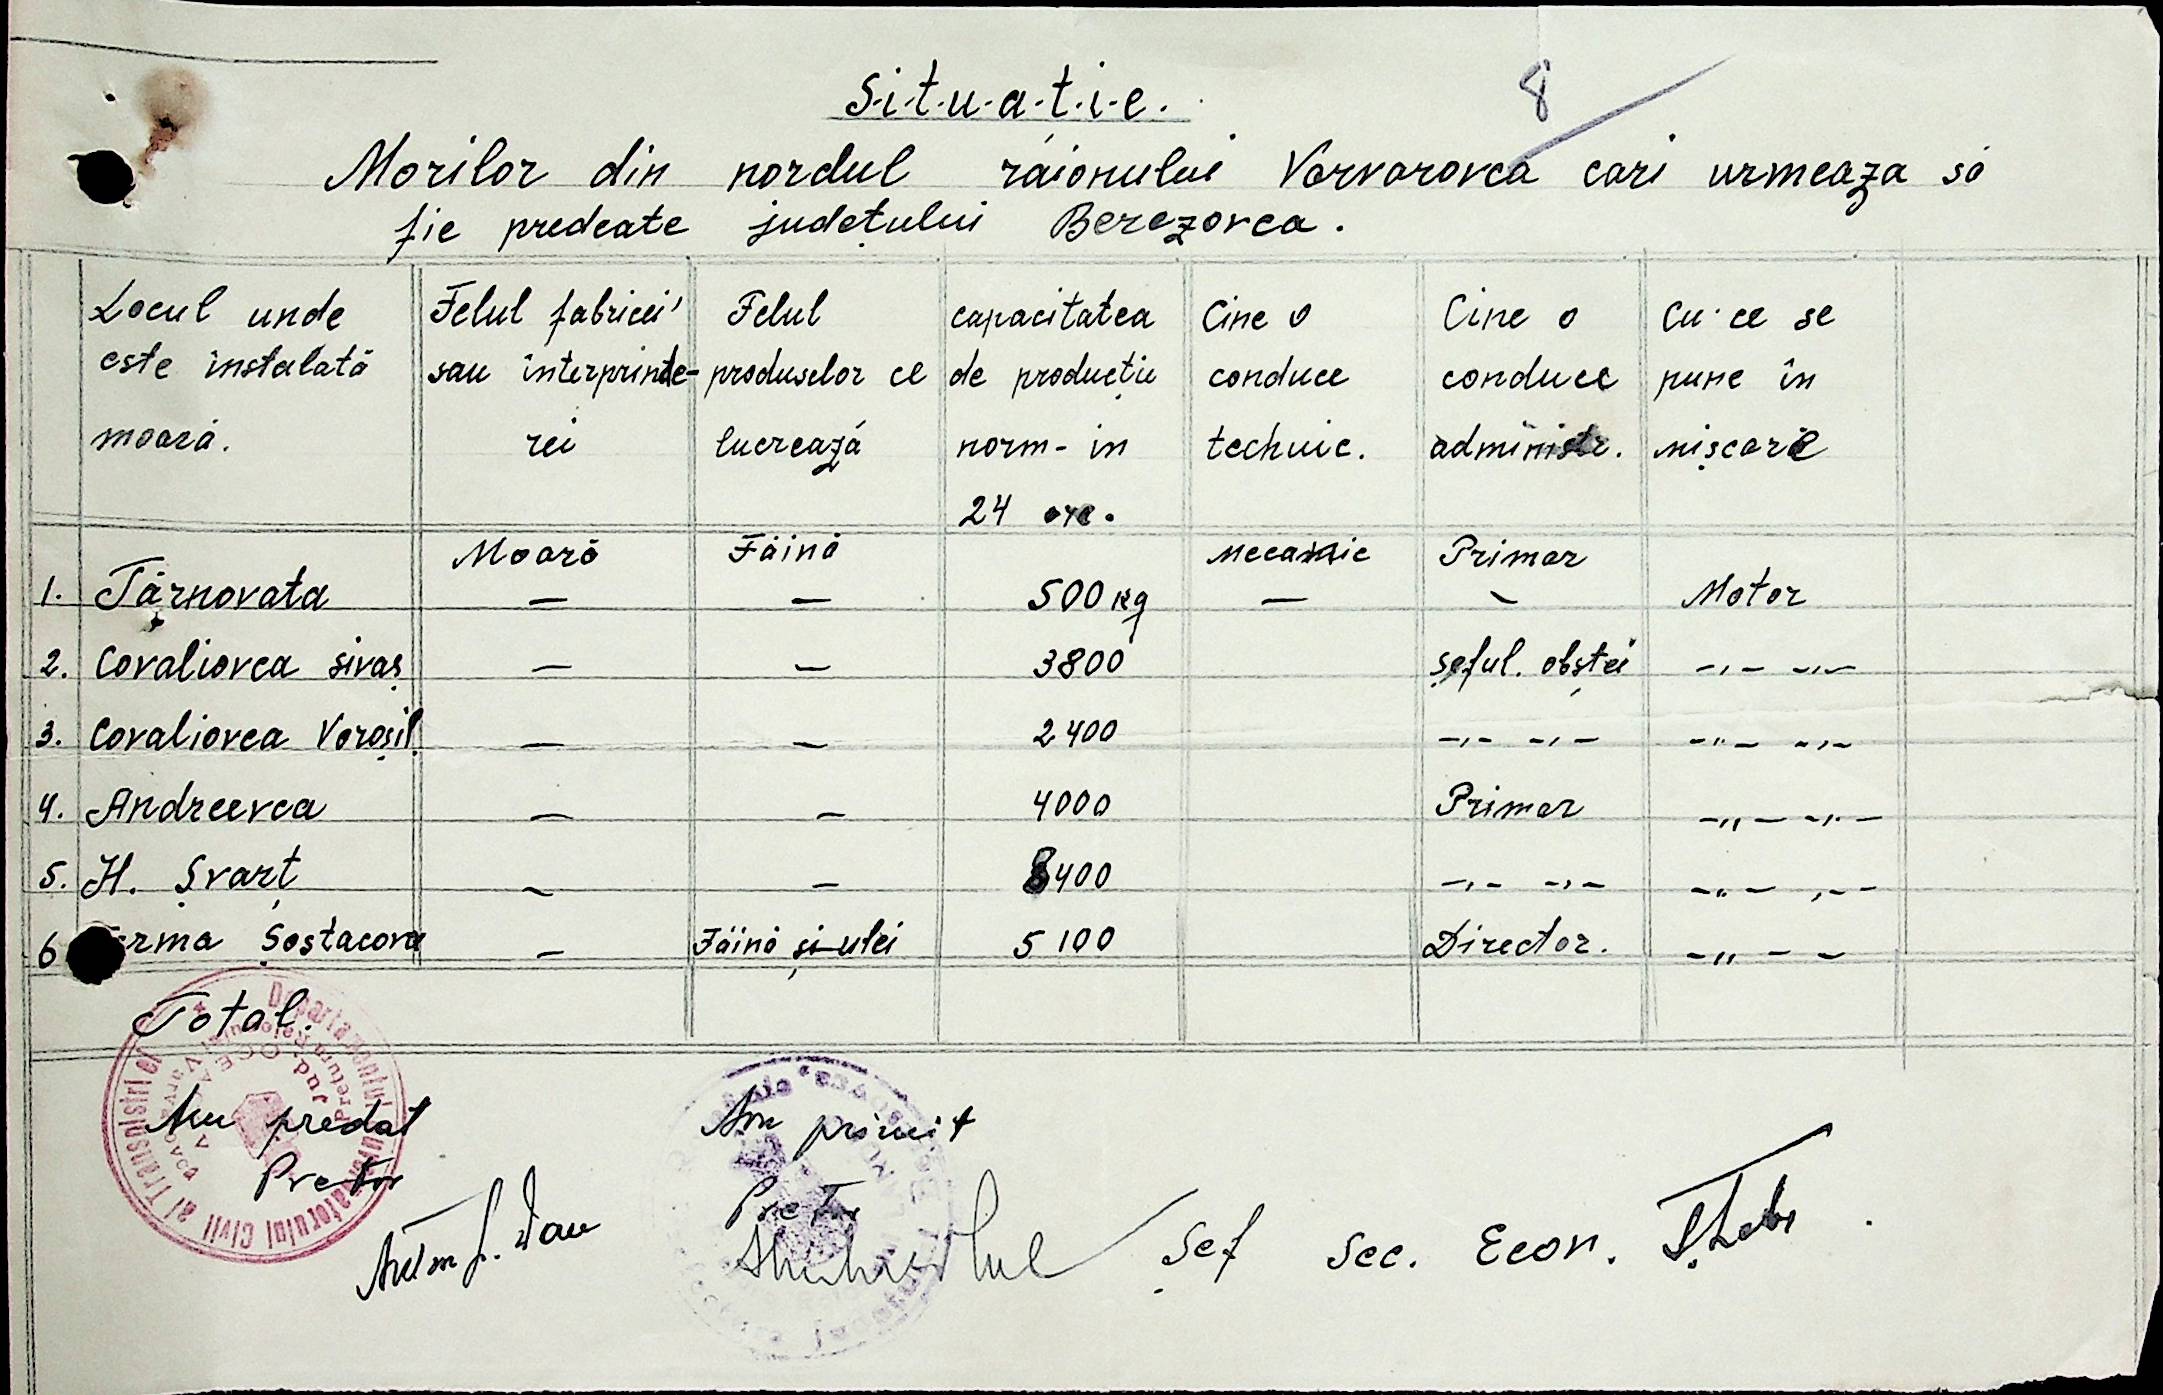 S-i-t-u-a-t-i-e.
8
Morilor din nordul raionului Varvarovca cari urmeaza să
fie predeate județului Berezovca.
Locul unde este instalată moară. | Felul fabricei sau interprinde-rei | Felul produselor ce lucrează | capacitatea de producție norm- in 24 ore. | Cine o conduce technic. | Cine o conduce administr. | Cu ce se pune în mișcare
1. Tărnovata | Moară — | Făină — | 500 kg | mecanic — | Primar - | Motor
2. Covaliovca sivaș | — | — | 3800 | | șeful. obștei | -,,- -,,-
3. Covaliovca Voroșil. | — | — | 2400 | | -,,- -,,- | -,,- -,,-
4. Andreevca | — | — | 4000 | | Primar | -,,- -,,-
5. H. Șvarț | — | — | 8400 | | -,,- -,,- | -,,- -,,-
6 Ferma Șostacova | — | Făină și ulei | 5100 | | Director. | -,,- -
Total.
Am predat
Pretor
Am primit
Pretor
Șef Sec. Econ.
Departamentul
Guvernatorului Civil al Transnistriei
Jud. OCEACOV
Pretura Raionului Varvarovca